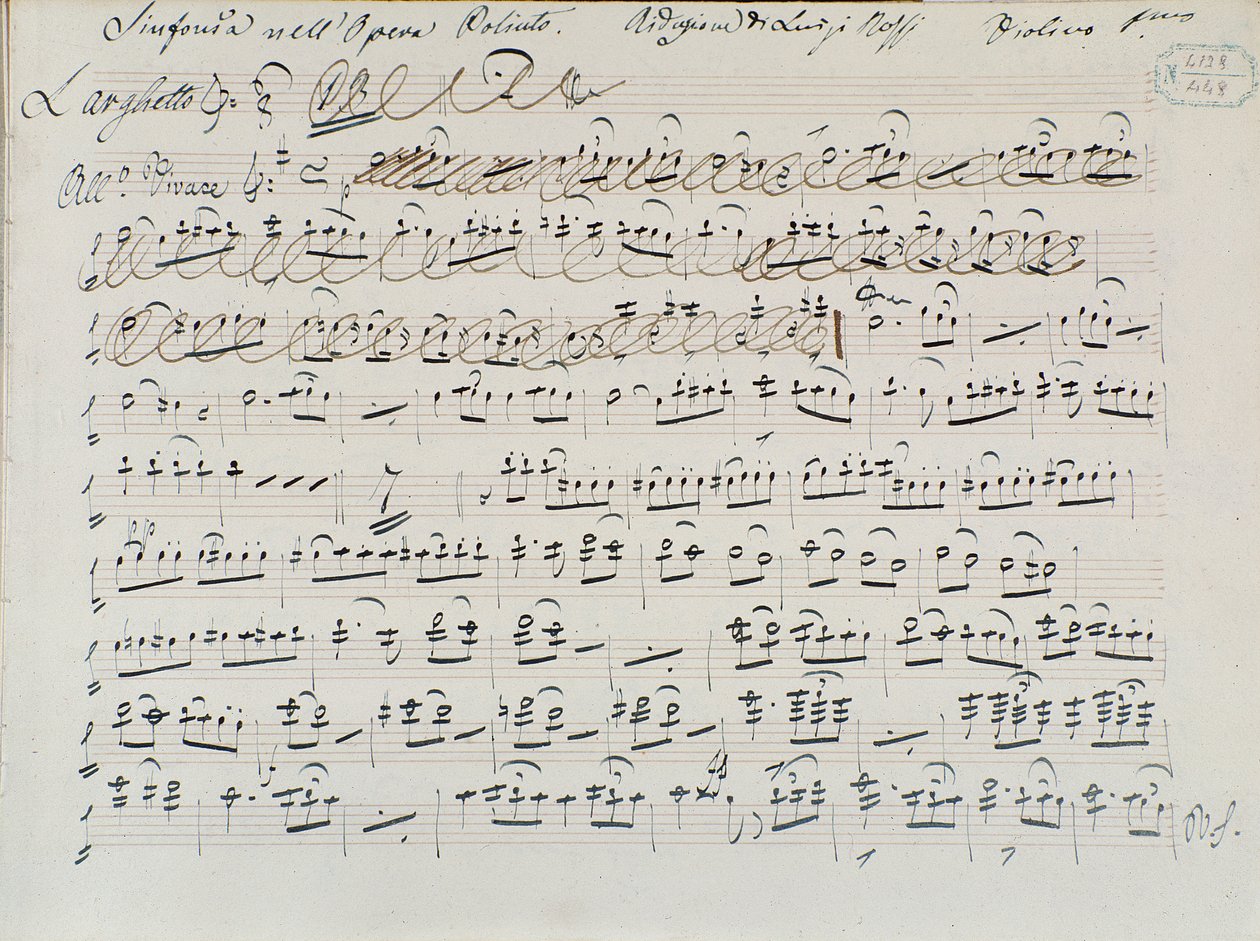 Sinfonia nell'Opera Poliuto. Riduzione di Luigi Rossi Violino P.mo
N. 4128
448
Larghetto
All.o Vivace p
7
ff
V. S.